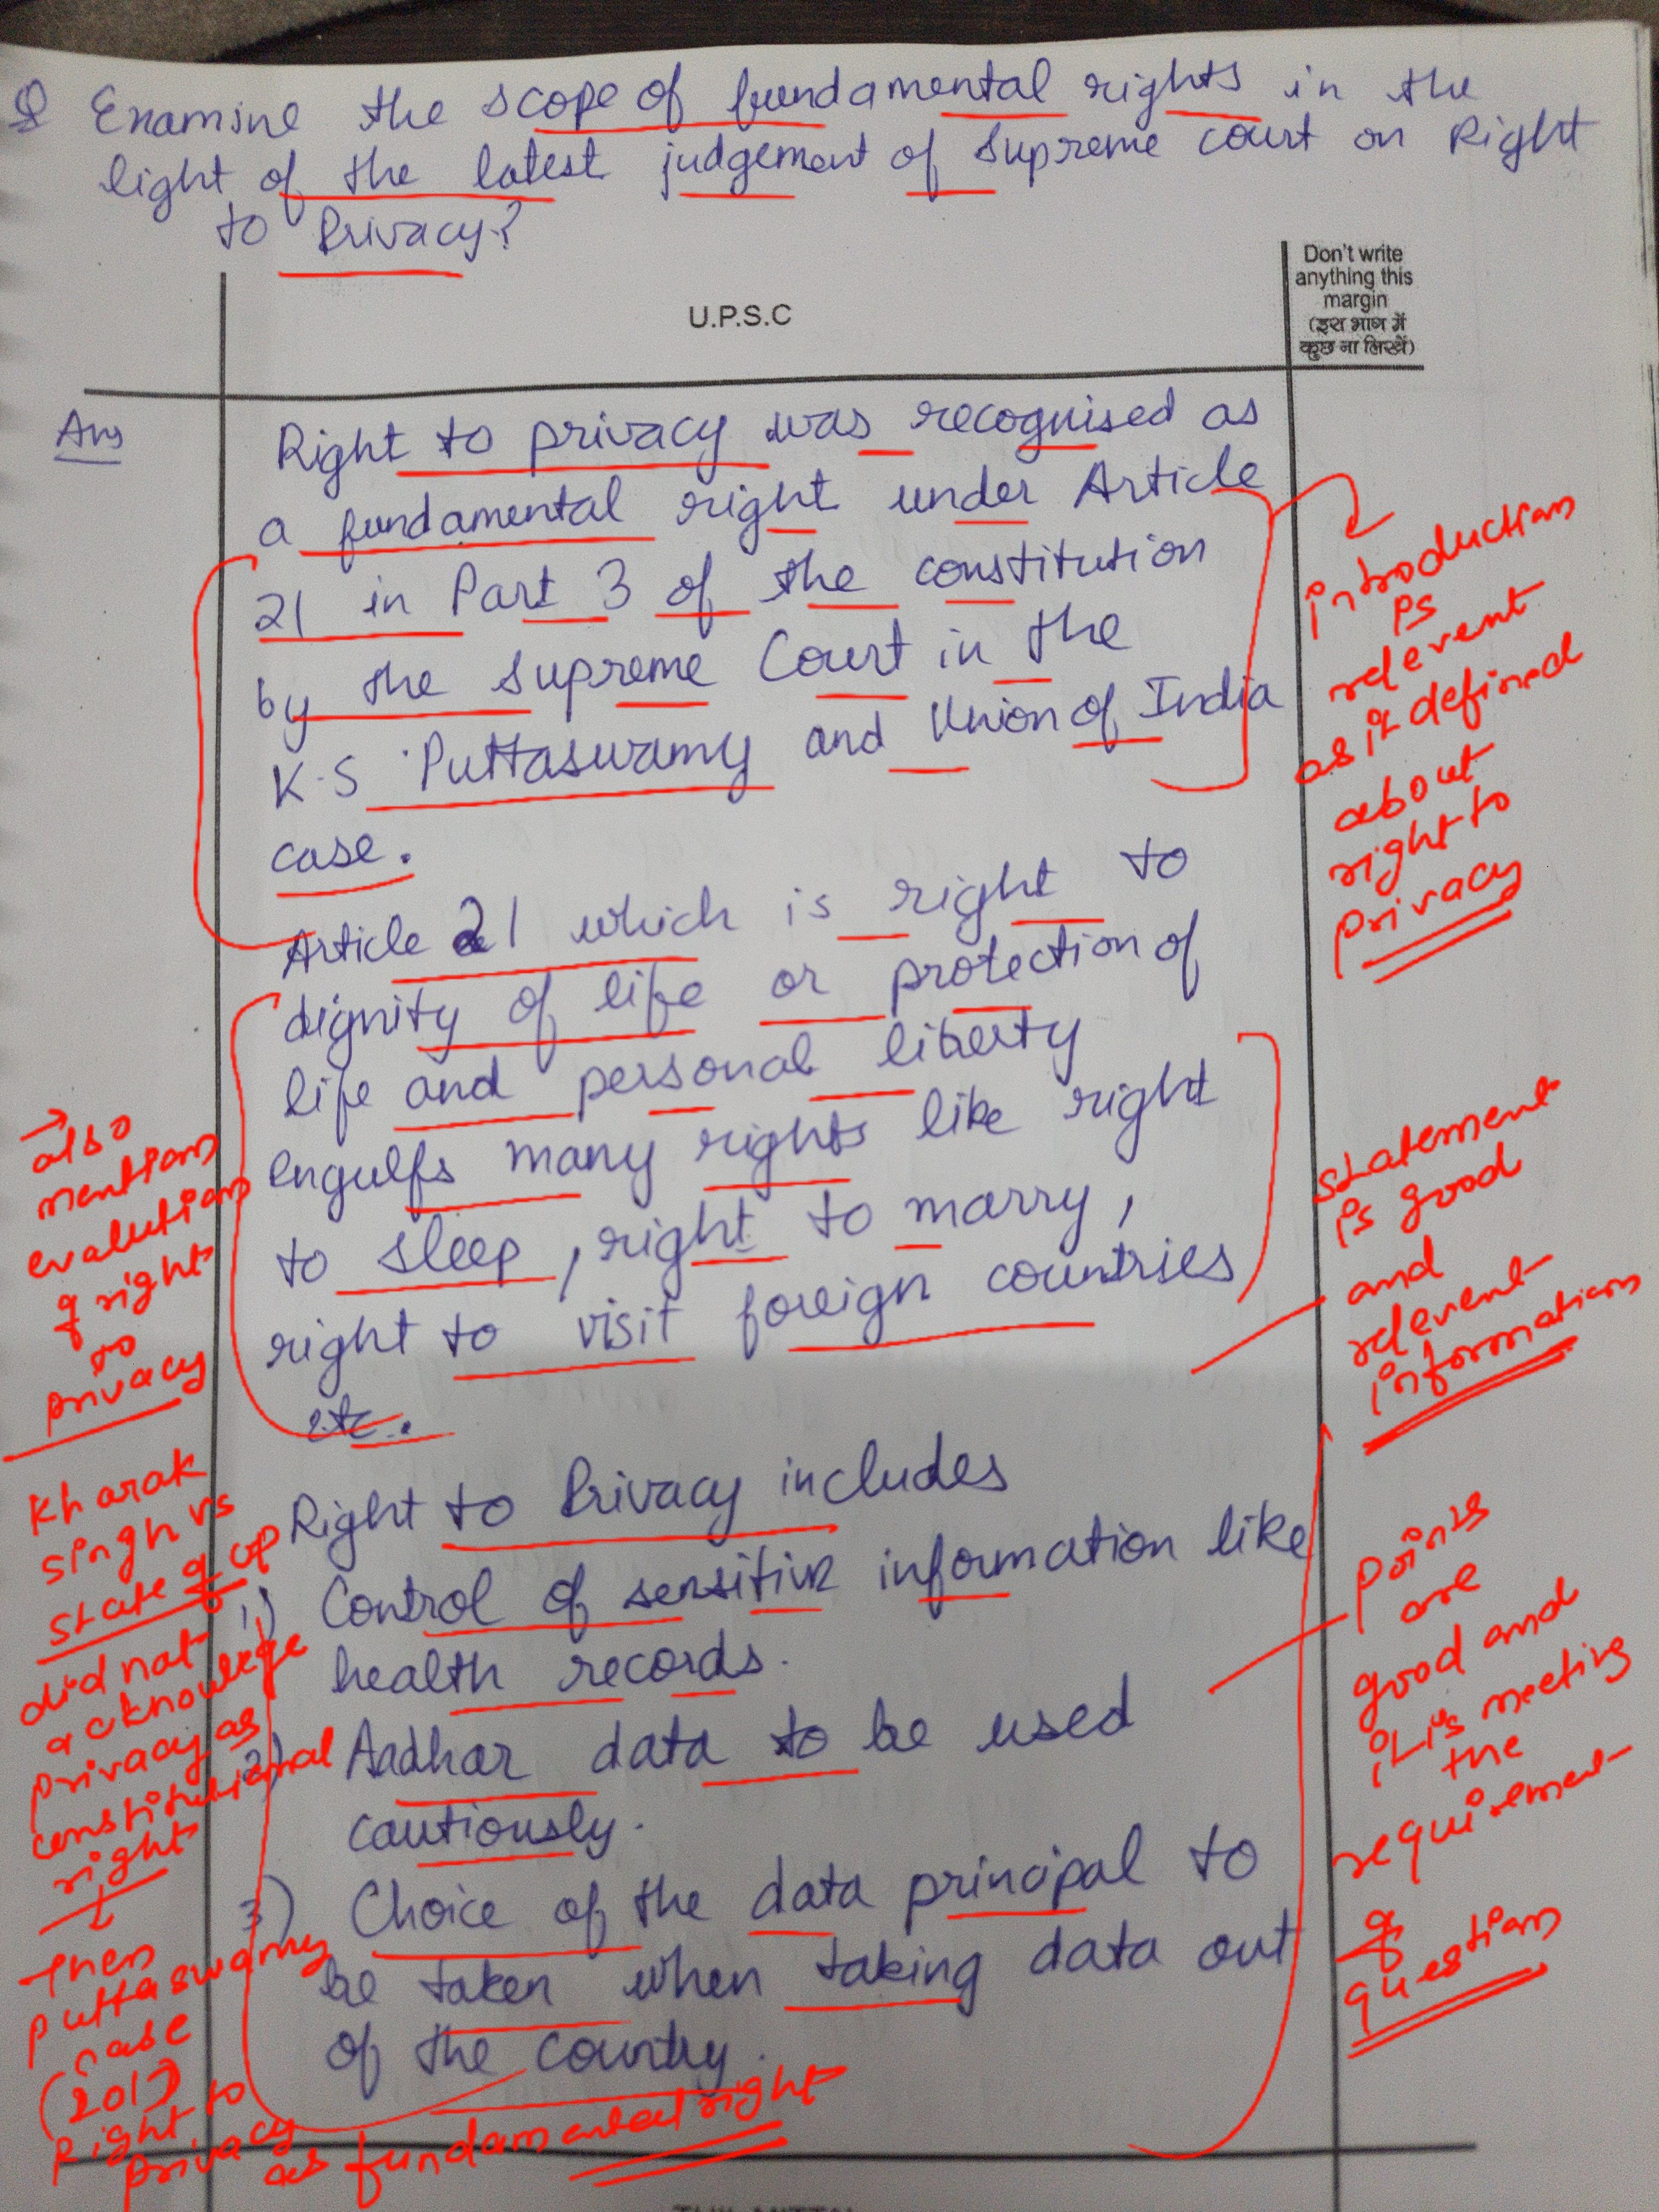 Q Examine the scope of fundamental rights in the
light of the latest judgement of Supreme Court on Right
to Privacy?
Don't write
anything this
margin
(इस भाग में
कुछ ना लिखें)
U.P.S.C
Ans
Right to privacy was recognised as
a fundamental right under Article
21 in Part 3 of the constitution
by the Supreme Court in the
K.S Puttaswamy and Union of India
case.
introduction
is
relevent
as it defined
about
right to
privacy
Article 21 which is right to
dignity of life or protection of
life and personal liberty
engulfs many rights like right
to sleep, right to marry,
right to visit foreign countries
etc.
statement
is good
and
relevent
information
→ also
mention
evalution
of right
to
privacy
Kharak
Singh vs
state of UP
did not
acknowlege
privacy as
constitutional
right
↓
Then
puttaswamy
case
(2017)
Right to
privacy
as fundamental right
Right to Privacy includes
1) Control of sensitive information like
health records.
2) Aadhar data to be used
cautiously.
3) Choice of the data principal to
be taken when taking data out
of the country.
points
are
good and
it is meeting
the
requirement
of
question